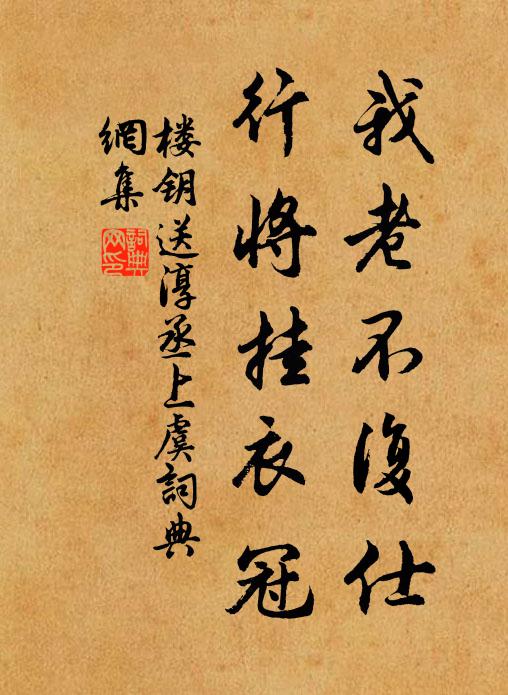 我老不復仕
行將挂衣冠
楼钥送淳丞上虞詞典
網集
詞典
网印